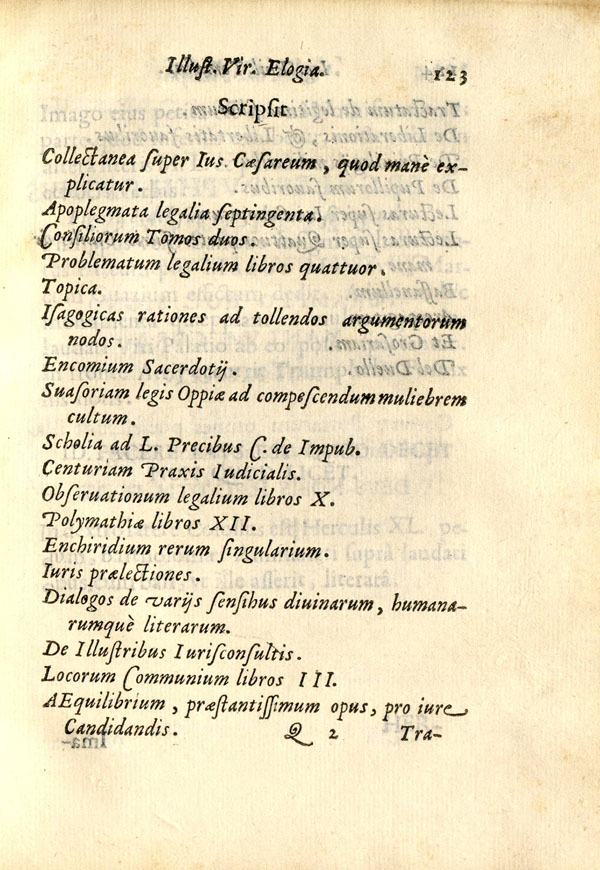 Illuſt. Vir. Elogia.
123
Scripſit
Collectanea ſuper Ius Cæſareum, quod manè ex-
plicatur.
Apoplegmata legalia ſeptingenta.
Conſiliorum Tomos duos.
Problematum legalium libros quattuor.
Topica.
Iſagogicas rationes ad tollendos argumentorum
nodos.
Encomium Sacerdotij.
Suaſoriam legis Oppiæ ad compeſcendum muliebrem
cultum.
Scholia ad L. Precibus C. de Impub.
Centuriam Praxis Iudicialis.
Obſeruationum legalium libros X.
Polymathiæ libros XII.
Enchiridium rerum ſingularium.
Iuris prælectiones.
Dialogos de varijs ſenſibus diuinarum, humana-
rumquè literarum.
De Illuſtribus Iuriſconſultis.
Locorum Communium libros III.
AEquilibrium, præſtantiſſimum opus, pro iure
Candidandis.
Q 2
Tra-